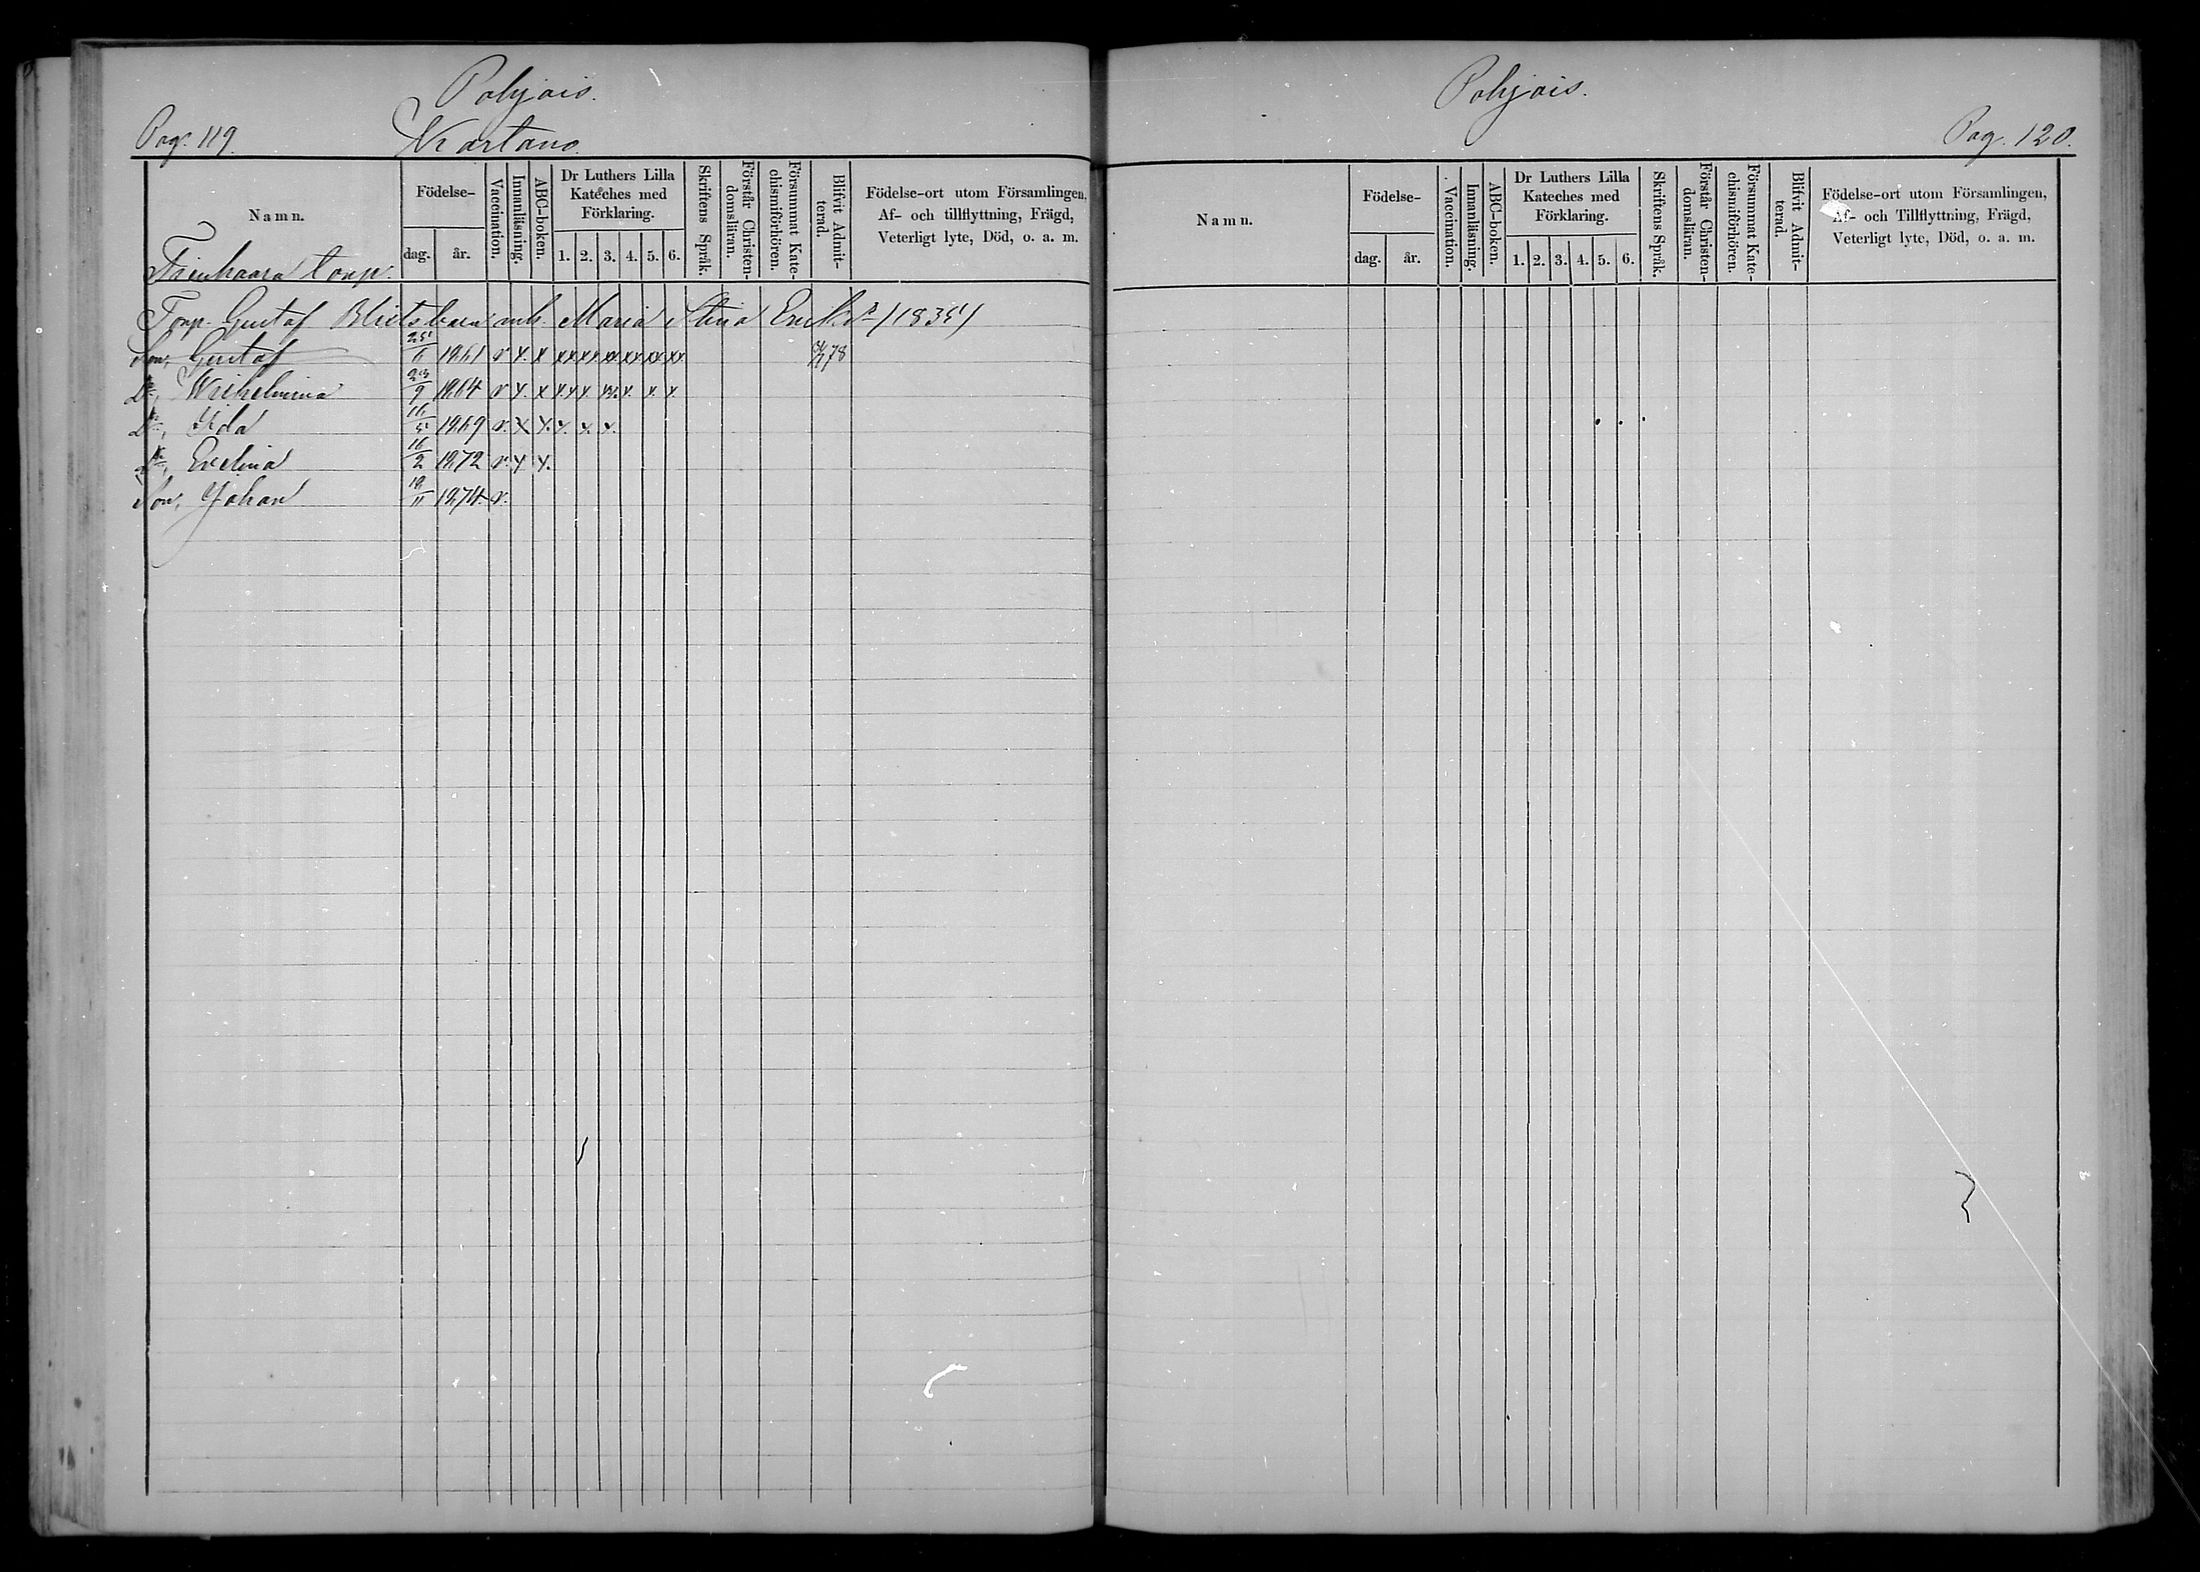 Pohjois.
Pag. 119.
Kartano.
Namn.
Födelse-
dag.
år.
Vaccination.
Innanläsning.
ABC-boken.
Dr Luthers Lilla
Kateches med
Förklaring.
1. 2. 3. 4. 5. 6.
Skriftens Språk.
Förstår Christen-
domsläran.
Försummat Kate-
chismiförhören.
Blifvit Admit-
terad.
Födelse-ort utom Församlingen,
Af- och tillflyttning, Frägd,
Veterligt lyte, Död, o. a. m.
torp.
Torp. Gustaf barn Maria Stina (1835)
Son, Gustaf 25/6 1861 v x x xx xx xx xx xx xx 78
Dr, Wilhelmina 23/9 1864 v x. x x.x x x. x. x. x.
Dr, Ida 16/5 1869 v. x x. x. x. x.
Dr, Evelina 16/2 1872 v. x x.
Son, Johan 18/11 1874. v.
Pohjois.
Pag. 120.
Namn.
Födelse-
dag.
år.
Vaccination.
Innanläsning.
ABC-boken.
Dr Luthers Lilla
Kateches med
Förklaring.
1. 2. 3. 4. 5. 6.
Skriftens Språk.
Förstår Christen-
domsläran.
Försummat Kate-
chismiförhören.
Blifvit Admit-
terad.
Födelse-ort utom Församlingen,
Af- och Tillflyttning, Frägd,
Veterligt lyte, Död, o. a. m.